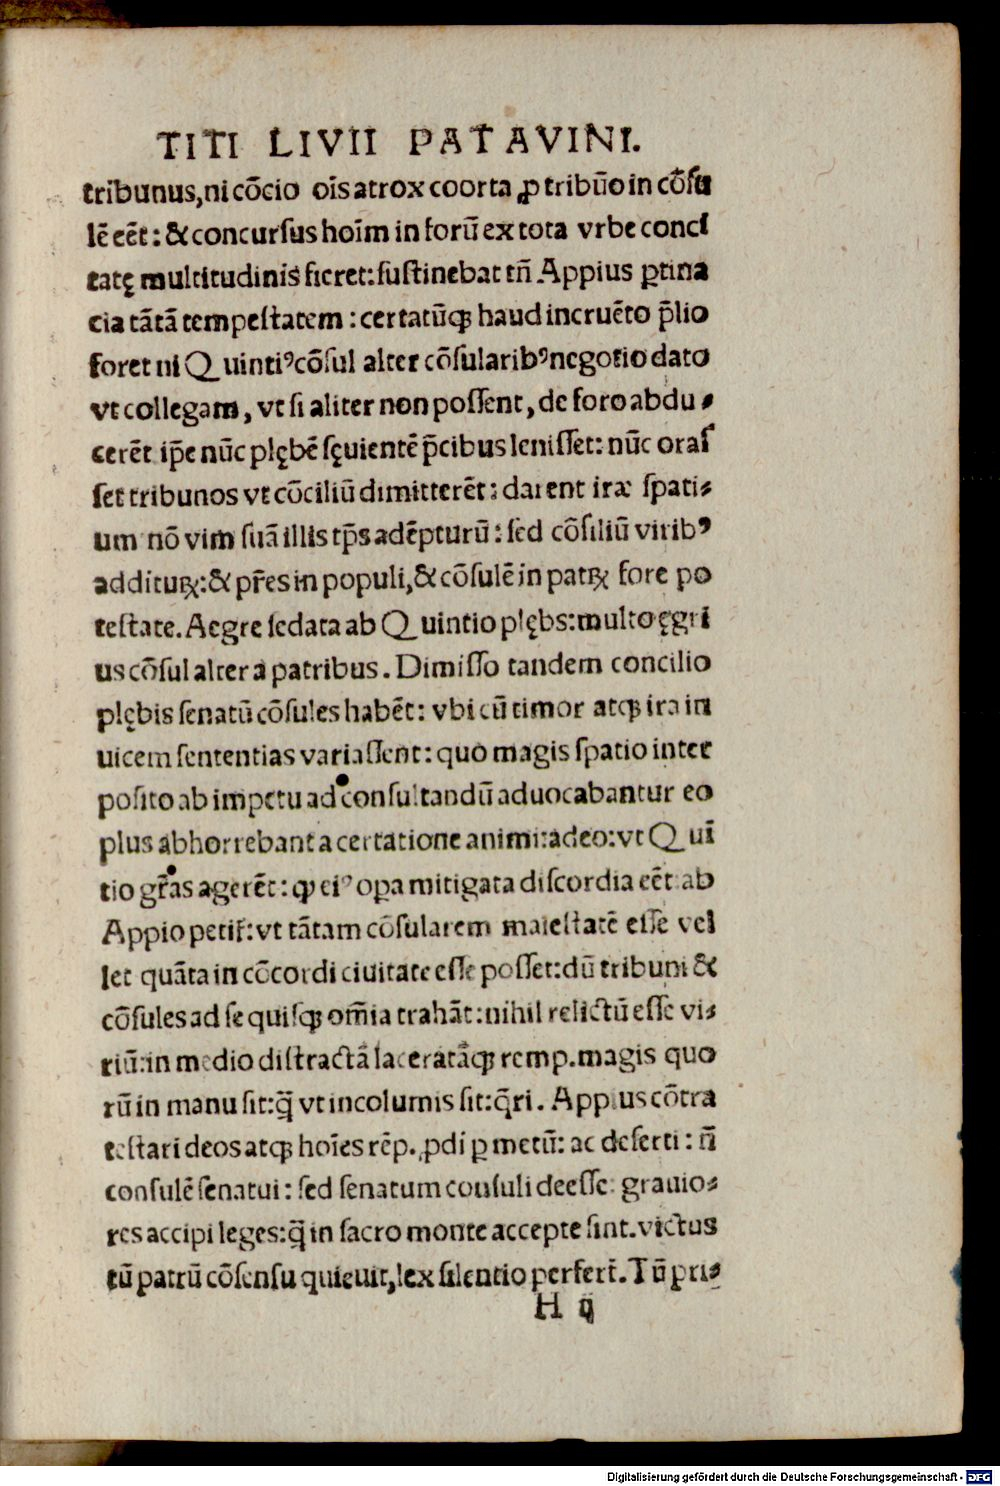 TITI LIVII PATAVINI.
tribunus,ni cōcio oīs atrox coorta ꝓ tribūo in cōſu
lē eēt: & concurſus hoīm in forū ex tota vrbe conci
tatę multitudinis fieret:ſuſtinebat tñ Appius ꝑtina
cia tātā tempeſtatem : certatūqꝫ haud incruēto p̄lio
foret ni Quintiꝰ cōſul alter cōſularibꝰ negotio dato
vt collegam, vt ſi aliter non poſſent, de foro abdu⸗
cerēt ip̄e nūc plębē ſęuientē p̄cibus leniſſet: nūc oraſ
ſet tribunos vt cōciliū dimitterēt: darent iræ ſpati⸗
um nō vim ſuā illis tp̄s adēpturū: ſed cōſiliū viribꝰ
additurꝝ:& pr̄es in populi,& cōſulē in patꝝ fore po
teſtate. Aegre ſedata ab Quintio plębs:multo ęgri
us cōſul alter a patribus. Dimiſſo tandem concilio
plębis ſenatū cōſules habēt: vbi cū timor atqꝫ ira in
uicem ſententias variaſſent: quo magis ſpatio inter
poſito ab impetu ad conſultandū aduocabantur eo
plus abhorrebant a certatione animi:adeo:vt Quī
tio gr̄as agerēt: ꝙ eiꝰ oꝑa mitigata diſcordia eēt ab
Appio petit̄: vt tātam cōſularem maieſtatē eſſe vel
let quāta in cōcordi ciuitate eſſe poſſet:dū tribuni &
cōſules ad ſe quiſqꝫ om̄ia trahāt: nihil relictū eſſe vi⸗
riū:in medio diſtractā laceratāqꝫ remp.magis quo
rū in manu ſit:q̄ꝫ vt incolumis ſit:q̄ri. Appius cōtra
teſtari deos atqꝫ hoīes rēp. ꝓdi ꝑ metū: ac deſerti: ñ
conſulē ſenatui: ſed ſenatum conſuli deeſſe: grauio⸗
res accipi leges:q̄ꝫ in ſacro monte accepte ſint. victus
tū patrū cōſenſu quieuit,lex ſilentio perfert̄. Tū pri⸗
H ij
Digitalisierung gefördert durch die Deutsche Forschungsgemeinschaft - DFG